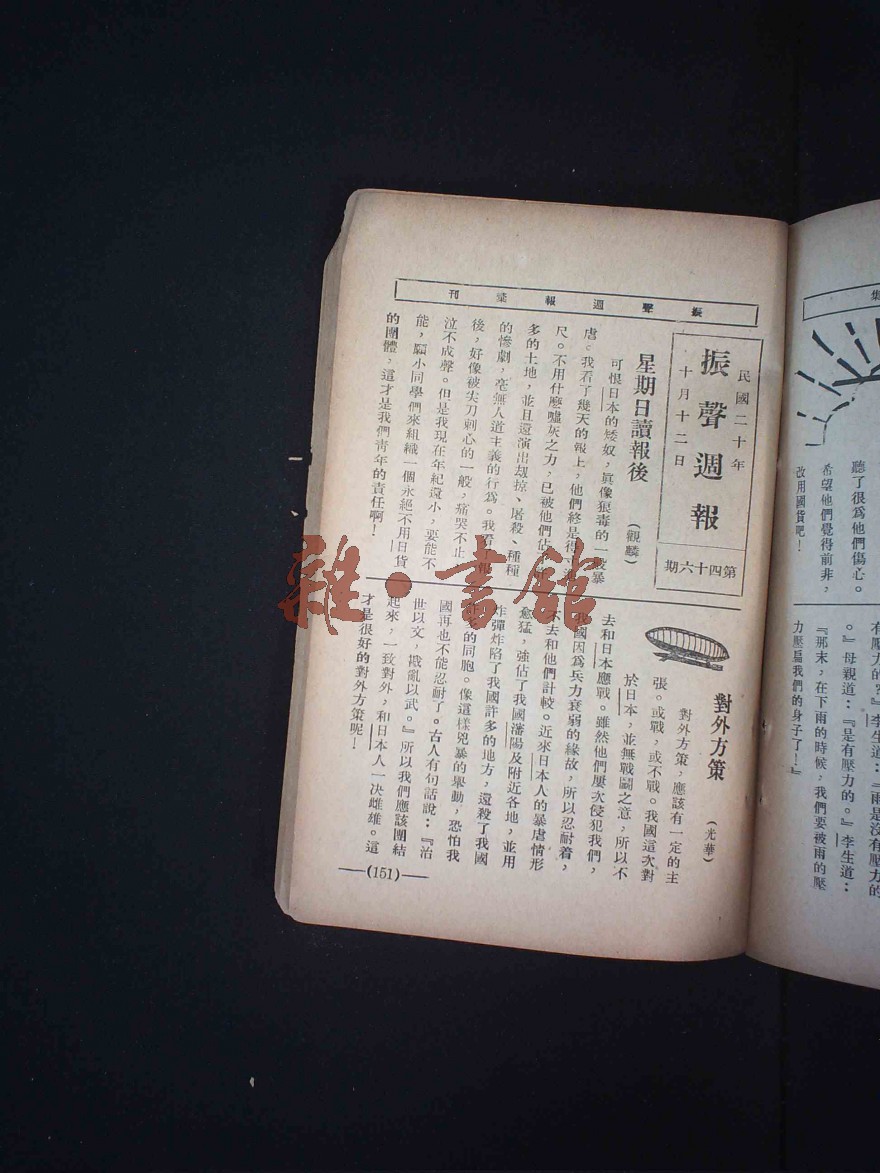 振聲週報彙刊
民國二十年
十月十二日
振聲週報
第四十六期
星期日讀報後
(觀麟)
可恨日本的矮奴，眞像狠毒的一般暴
虐。我看了幾天的報上，他們終是得寸進
尺。不用什麽噓灰之力，已被他們佔了許
多的土地，並且還演出刼掠、屠殺、種種
的慘劇，毫無人道主義的行爲。我看了報
後，好像被尖刀刺心的一般，痛哭不止，
泣不成聲。但是我現在年紀還小，要能不
能，願小同學們來組織一個永絕不用日貨
的團體，這才是我們靑年的責任啊！
對外方策
(光華)
對外方策，應該有一定的主
張。或戰，或不戰。我國這次對
於日本，並無戰鬪之意，所以不
去和日本應戰。雖然他們屢次侵犯我們，
我國因爲兵力衰弱的緣故，所以忍耐着，
不去和他們計較。近來日本人的暴虐情形
愈猛，強佔了我國瀋陽及附近各地，並用
炸彈炸陷了我國許多的地方，還殺了我國
許多的同胞。像這樣兇暴的舉動，恐怕我
國再也不能忍耐了。古人有句話說：『治
世以文，戡亂以武。』所以我們應該團結
起來，一致對外，和日本人一决雌雄。這
才是很好的對外方策呢！
(151)
雜·書館
集
聽了很爲他們傷心。
希望他們覺得前非，
改用國貨吧！
有壓力的害』李生道：『雨是沒有壓力的
。』母親道：『是有壓力的。』李生道：
『那末，在下雨的時候，我們要被雨的壓
力壓扁我們的身子了！』